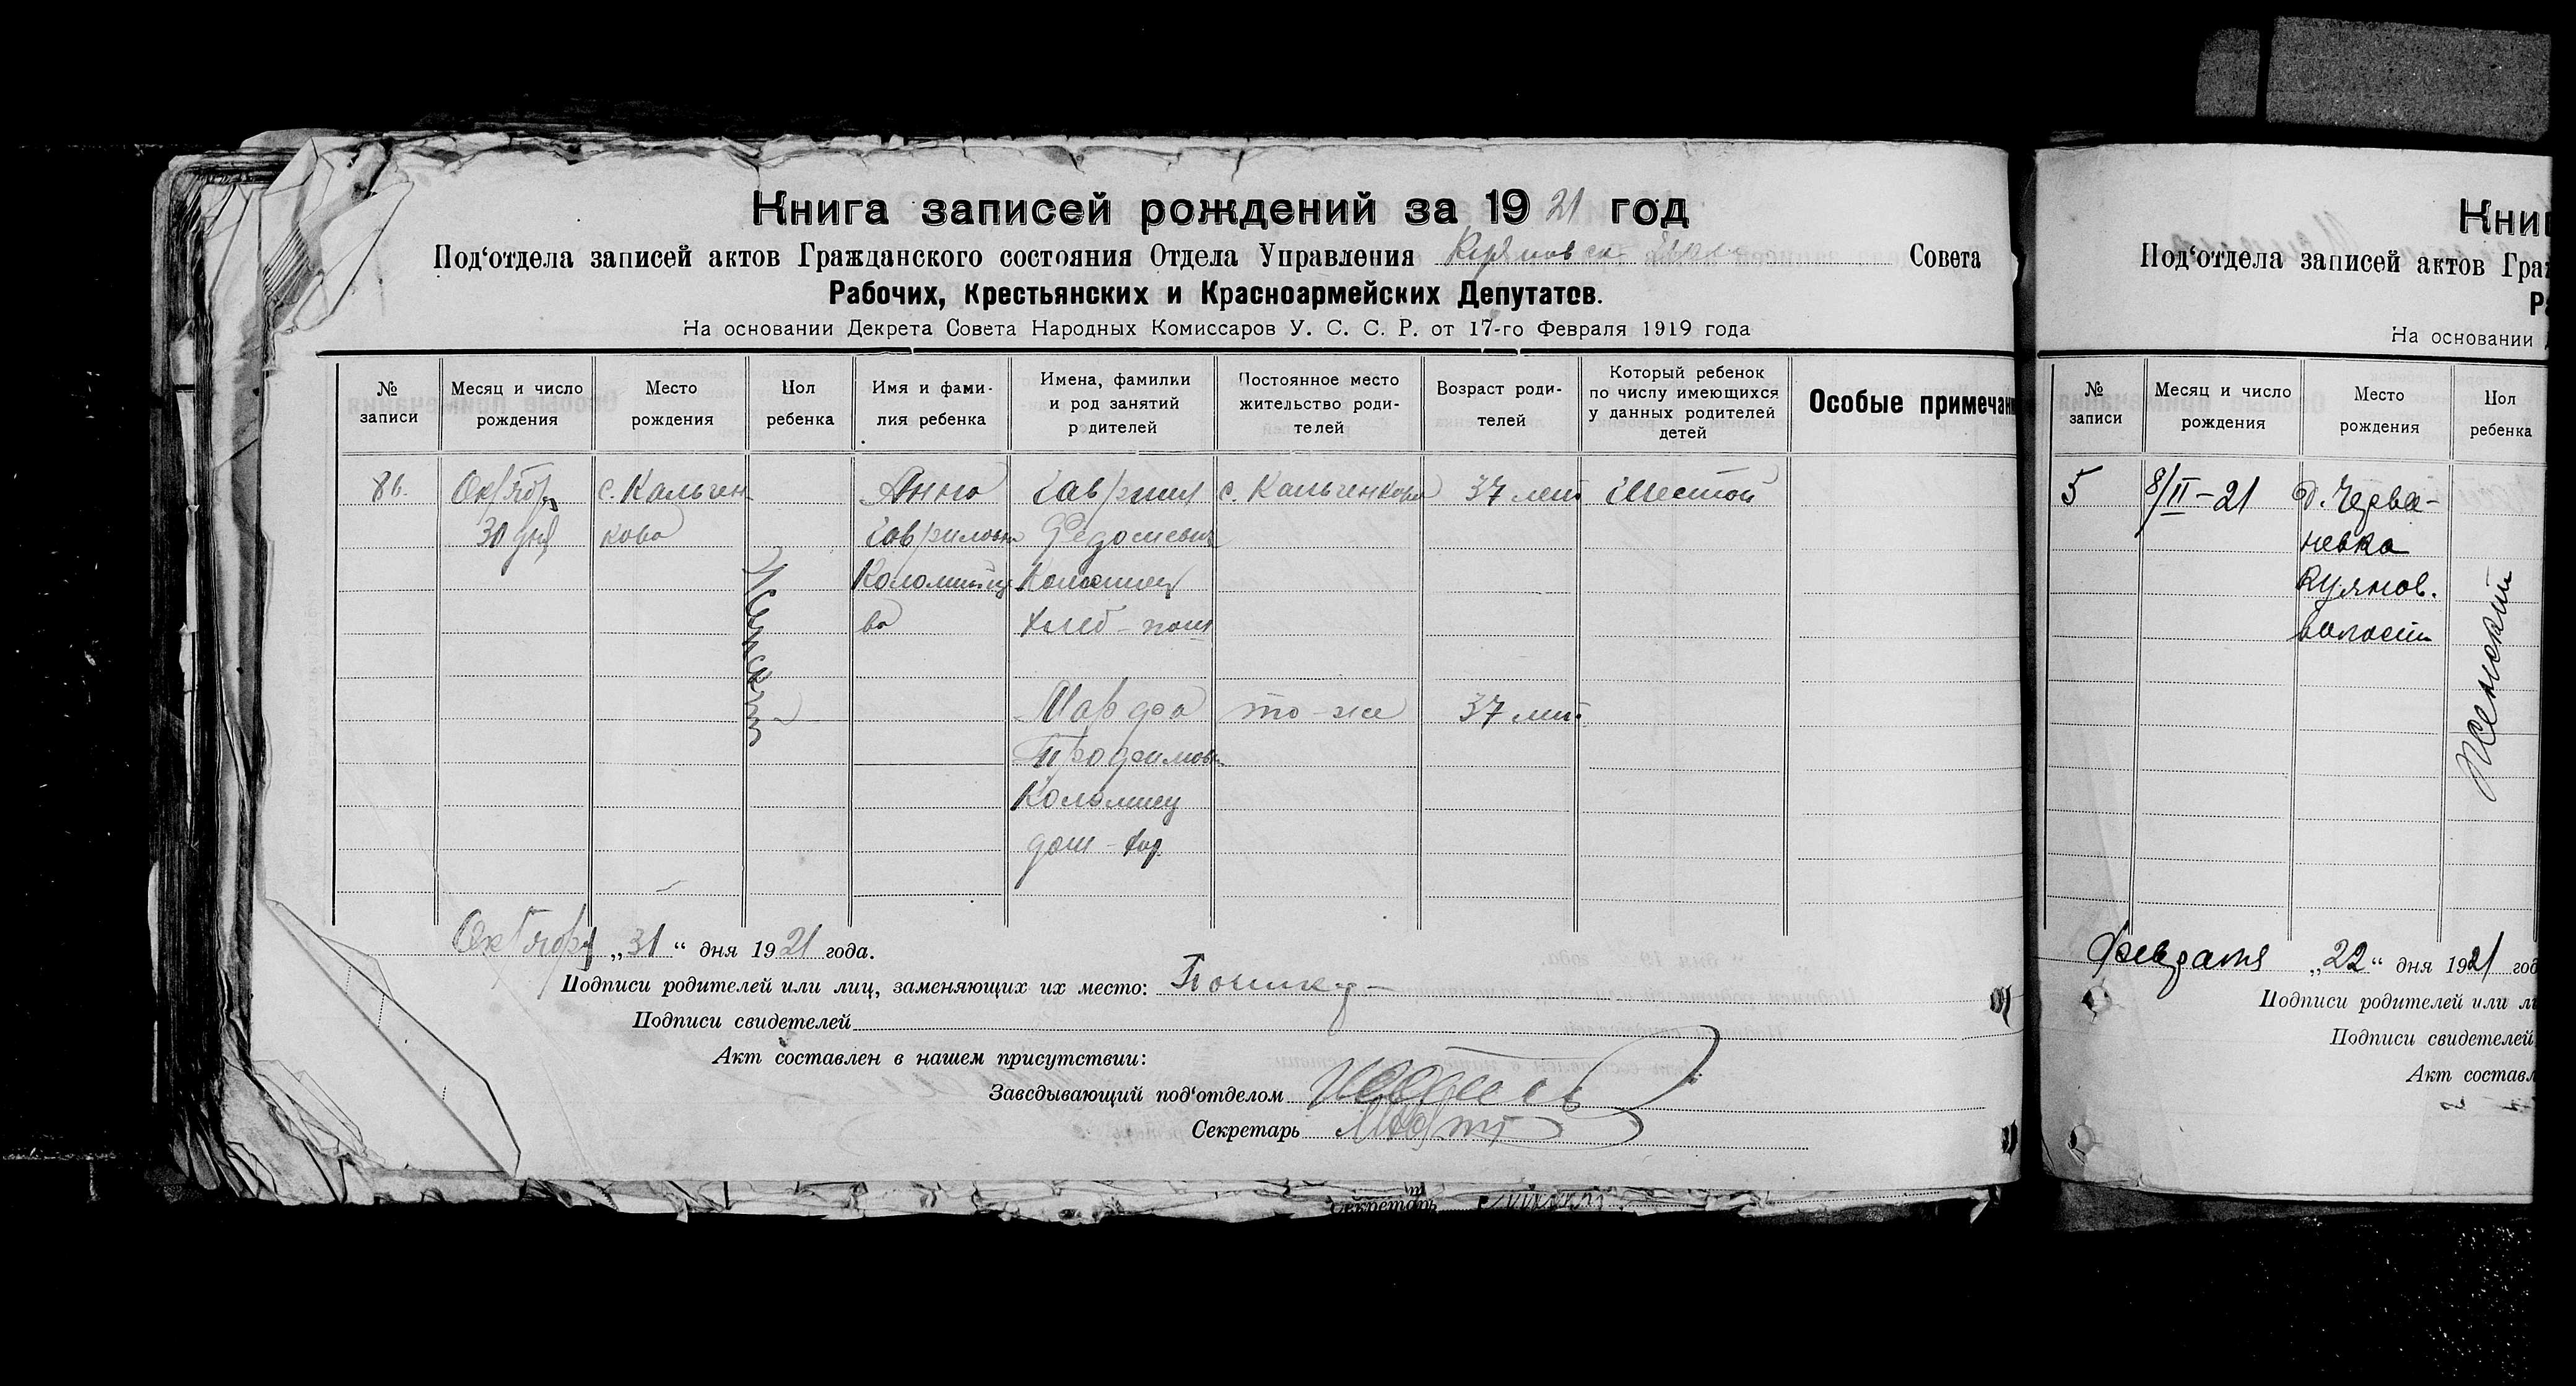 Книга записей рождений за 1921 год
Под‘отдела записей актов Гражданского состояния Отдела Управления Совета
Рабочих, Крестьянских и Красноармейских Депутатов.
На основании Декрета Совета Народных Комиссаров У. С. С. Р. от 17-го Февраля 1919 года
№ записи
Месяц и число рождения
Место рождения
Пол ребенка
Имя и фами-
лия ребенка
Имена, фамилии
и род занятий
р дителей
Постоянное место
жительство роди-
телей
Возраст роди-
телей
Который ребенок
по числу имеющихся
у данных родителей
детей
Особые примечан
86.
Октябр
30 дня
с. Кальчен
кова
Женский
Анна
Гавриловна
Коломийце
ва
Гавриил
Федосиевич
Коломиец
хлеб-паш
Марфа
Трофимовн
Коломиец
дом-хоз
с. Кальченкова
то-же
37 лет
37 лет
Шестой
Октября „31“ дня 1921 года.
Подписи родителей или лиц, заменяющих их место:
Подписи свидетелей
Акт составлен в нашем присутствии:
Заведывающий под‘отделом
Секретарь
Секретарь
Книг
Под‘отдела записей актов Граж
Р
На основании
№ записи
Месяц и число
рождения
Место
рождения
Пол
ребенка
5
8/II-21
д. Червле-
невка
Куянов.
волости
Женский
Февраля „22“ дня 1921 год
Подписи родителей или ли
Подписи свидетелей
Акт составл